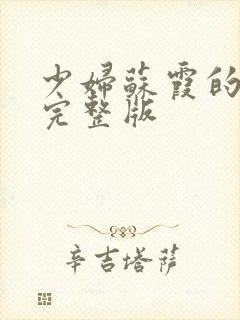 少婦蘇霞的
完整版
辛吉塔萨